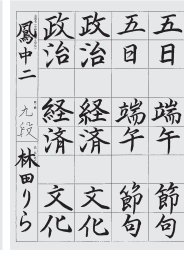 五日 端午 節句
五日 端午 節句
政治 経済 文化
政治 経済 文化
鳳中二 九段 林田りら